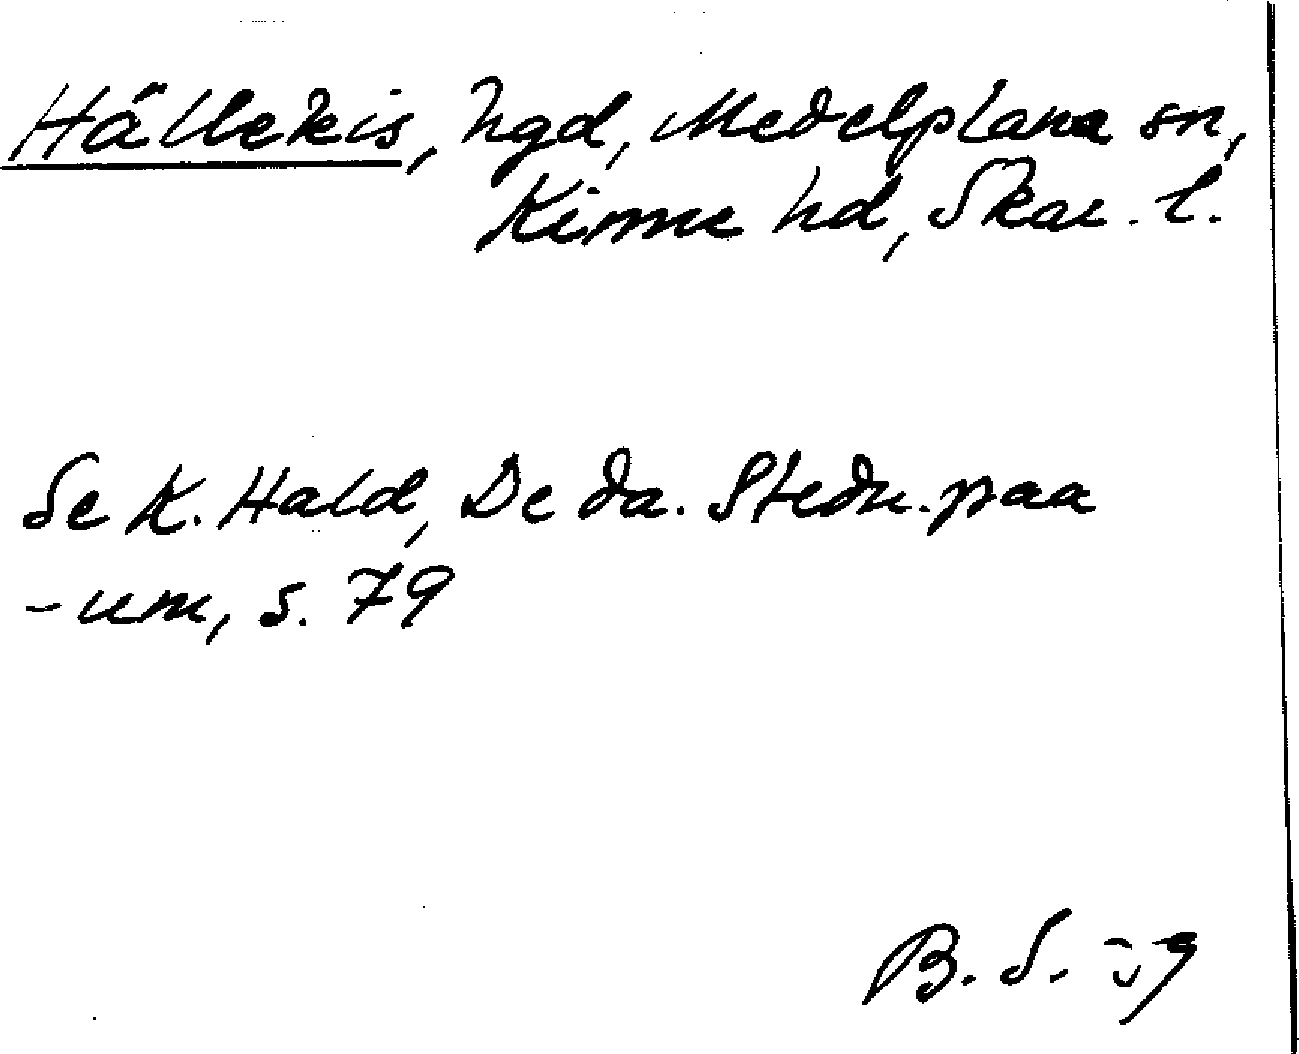 Hällekis, hgd, Medelplana sn,
Kinne hd, Skar. l.
Se K. Hald, De da. Stedn. paa
-um, s. 79
B. S.